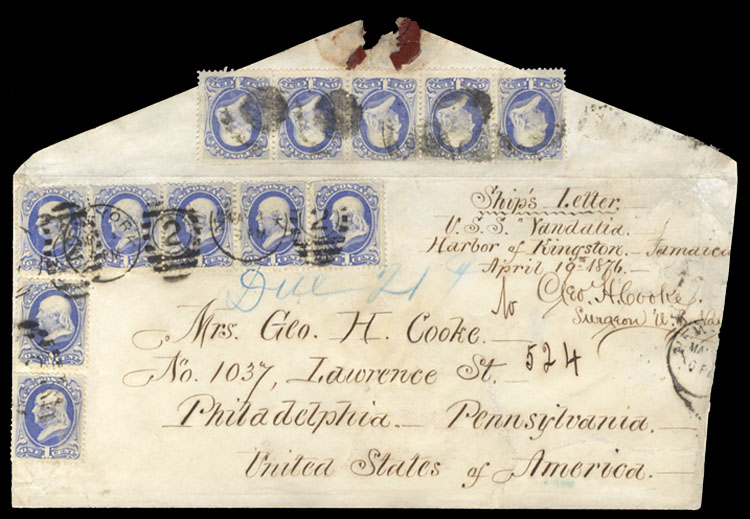 Ship's Letter.
U.S.S. "Vandalia."
Harbor of Kingston. Jamaica
April 19th 1876.
Geo. H. Cooke.
Surgeon U.S. Nav
Due 21
Mrs. Geo. H. Cooke.
524
No. 1037, Lawrence St.
Philadelphia. Pennsylvania.
United States of America.
YORK
2
2
MA